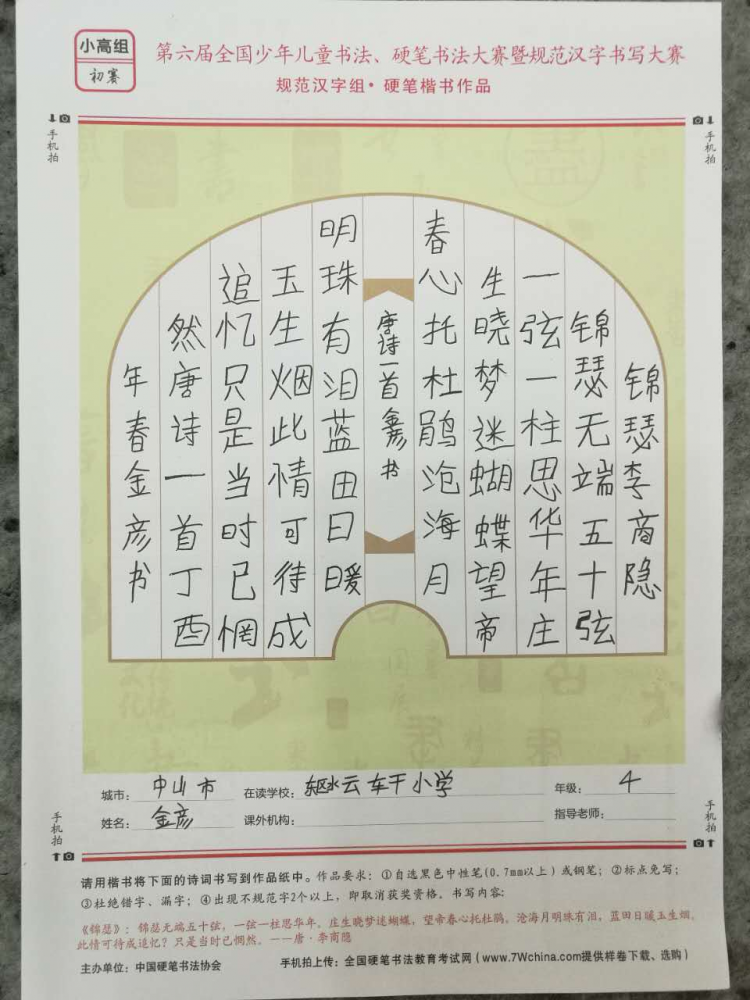 小高组
初赛
第六届全国少年儿童书法、硬笔书法大赛暨规范汉字书写大赛
规范汉字组·硬笔楷书作品
手机拍
手机拍
锦瑟李商隐
锦瑟无端五十弦
一弦一柱思华年庄
生晓梦迷蝴蝶望帝
春心托杜鹃沧海月
唐诗一首金彦书
明珠有泪蓝田日暖
玉生烟此情可待成
追忆只是当时已惘
然唐诗一首丁酉
年春金彦书
城市：中山市 在读学校：东区水云轩小学 年级：4
姓名：金彦 课外机构： 指导老师：
手机拍
手机拍
请用楷书将下面的诗词书写到作品纸中。作品要求：①自选黑色中性笔(0.7mm以上)或钢笔；②标点免写；
③杜绝错字、漏字；④出现不规范字2个以上，即取消获奖资格。书写内容：
《锦瑟》：锦瑟无端五十弦，一弦一柱思华年。庄生晓梦迷蝴蝶，望帝春心托杜鹃。沧海月明珠有泪，蓝田日暖玉生烟。
此情可待成追忆？只是当时已惘然。——唐·李商隐
主办单位：中国硬笔书法协会 手机拍上传：全国硬笔书法教育考试网(www.7Wchina.com提供样卷下载、选购)